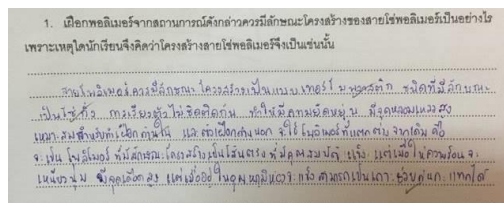 1. เฝือกพอลิเมอร์จากสถานการณ์ดังกล่าวควรมีลักษณะโครงสร้างของสายโซ่พอลิเมอร์เป็นอย่างไร
เพราะเหตุใดนักเรียนจึงคิดว่าโครงสร้างสายโซ่พอลิเมอร์จึงเป็นเช่นนั้น
สายโพลิเมอร์ควรมีลักษณะโครงสร้างเป็นแบบเทอร์โมพลาสติก ชนิดที่มีลักษณะ
เป็นโซ่กิ่ง การเรียงตัวไม่ชิดติดกัน ทำให้มีความยืดหยุ่น มีจุดหลอมเหลวสูง
เหมาะสมสำหรับทำเฝือกด้านใน และตัวเฝือกด้านนอก จะใช้โพลิเมอร์ที่แตกต่างจากเดิม คือ
จะเป็นโพลิเมอร์ที่มีลักษณะโครงสร้างเป็นเส้นตรง ที่มีคุณสมบัติ แข็ง แต่เมื่อให้ความร้อนจะ
เหนียวนุ่ม มีจุดเดือดสูง แต่เมื่ออยู่ในอุณหภูมิห้องจะแข็ง สามารถเป็นเกราะ